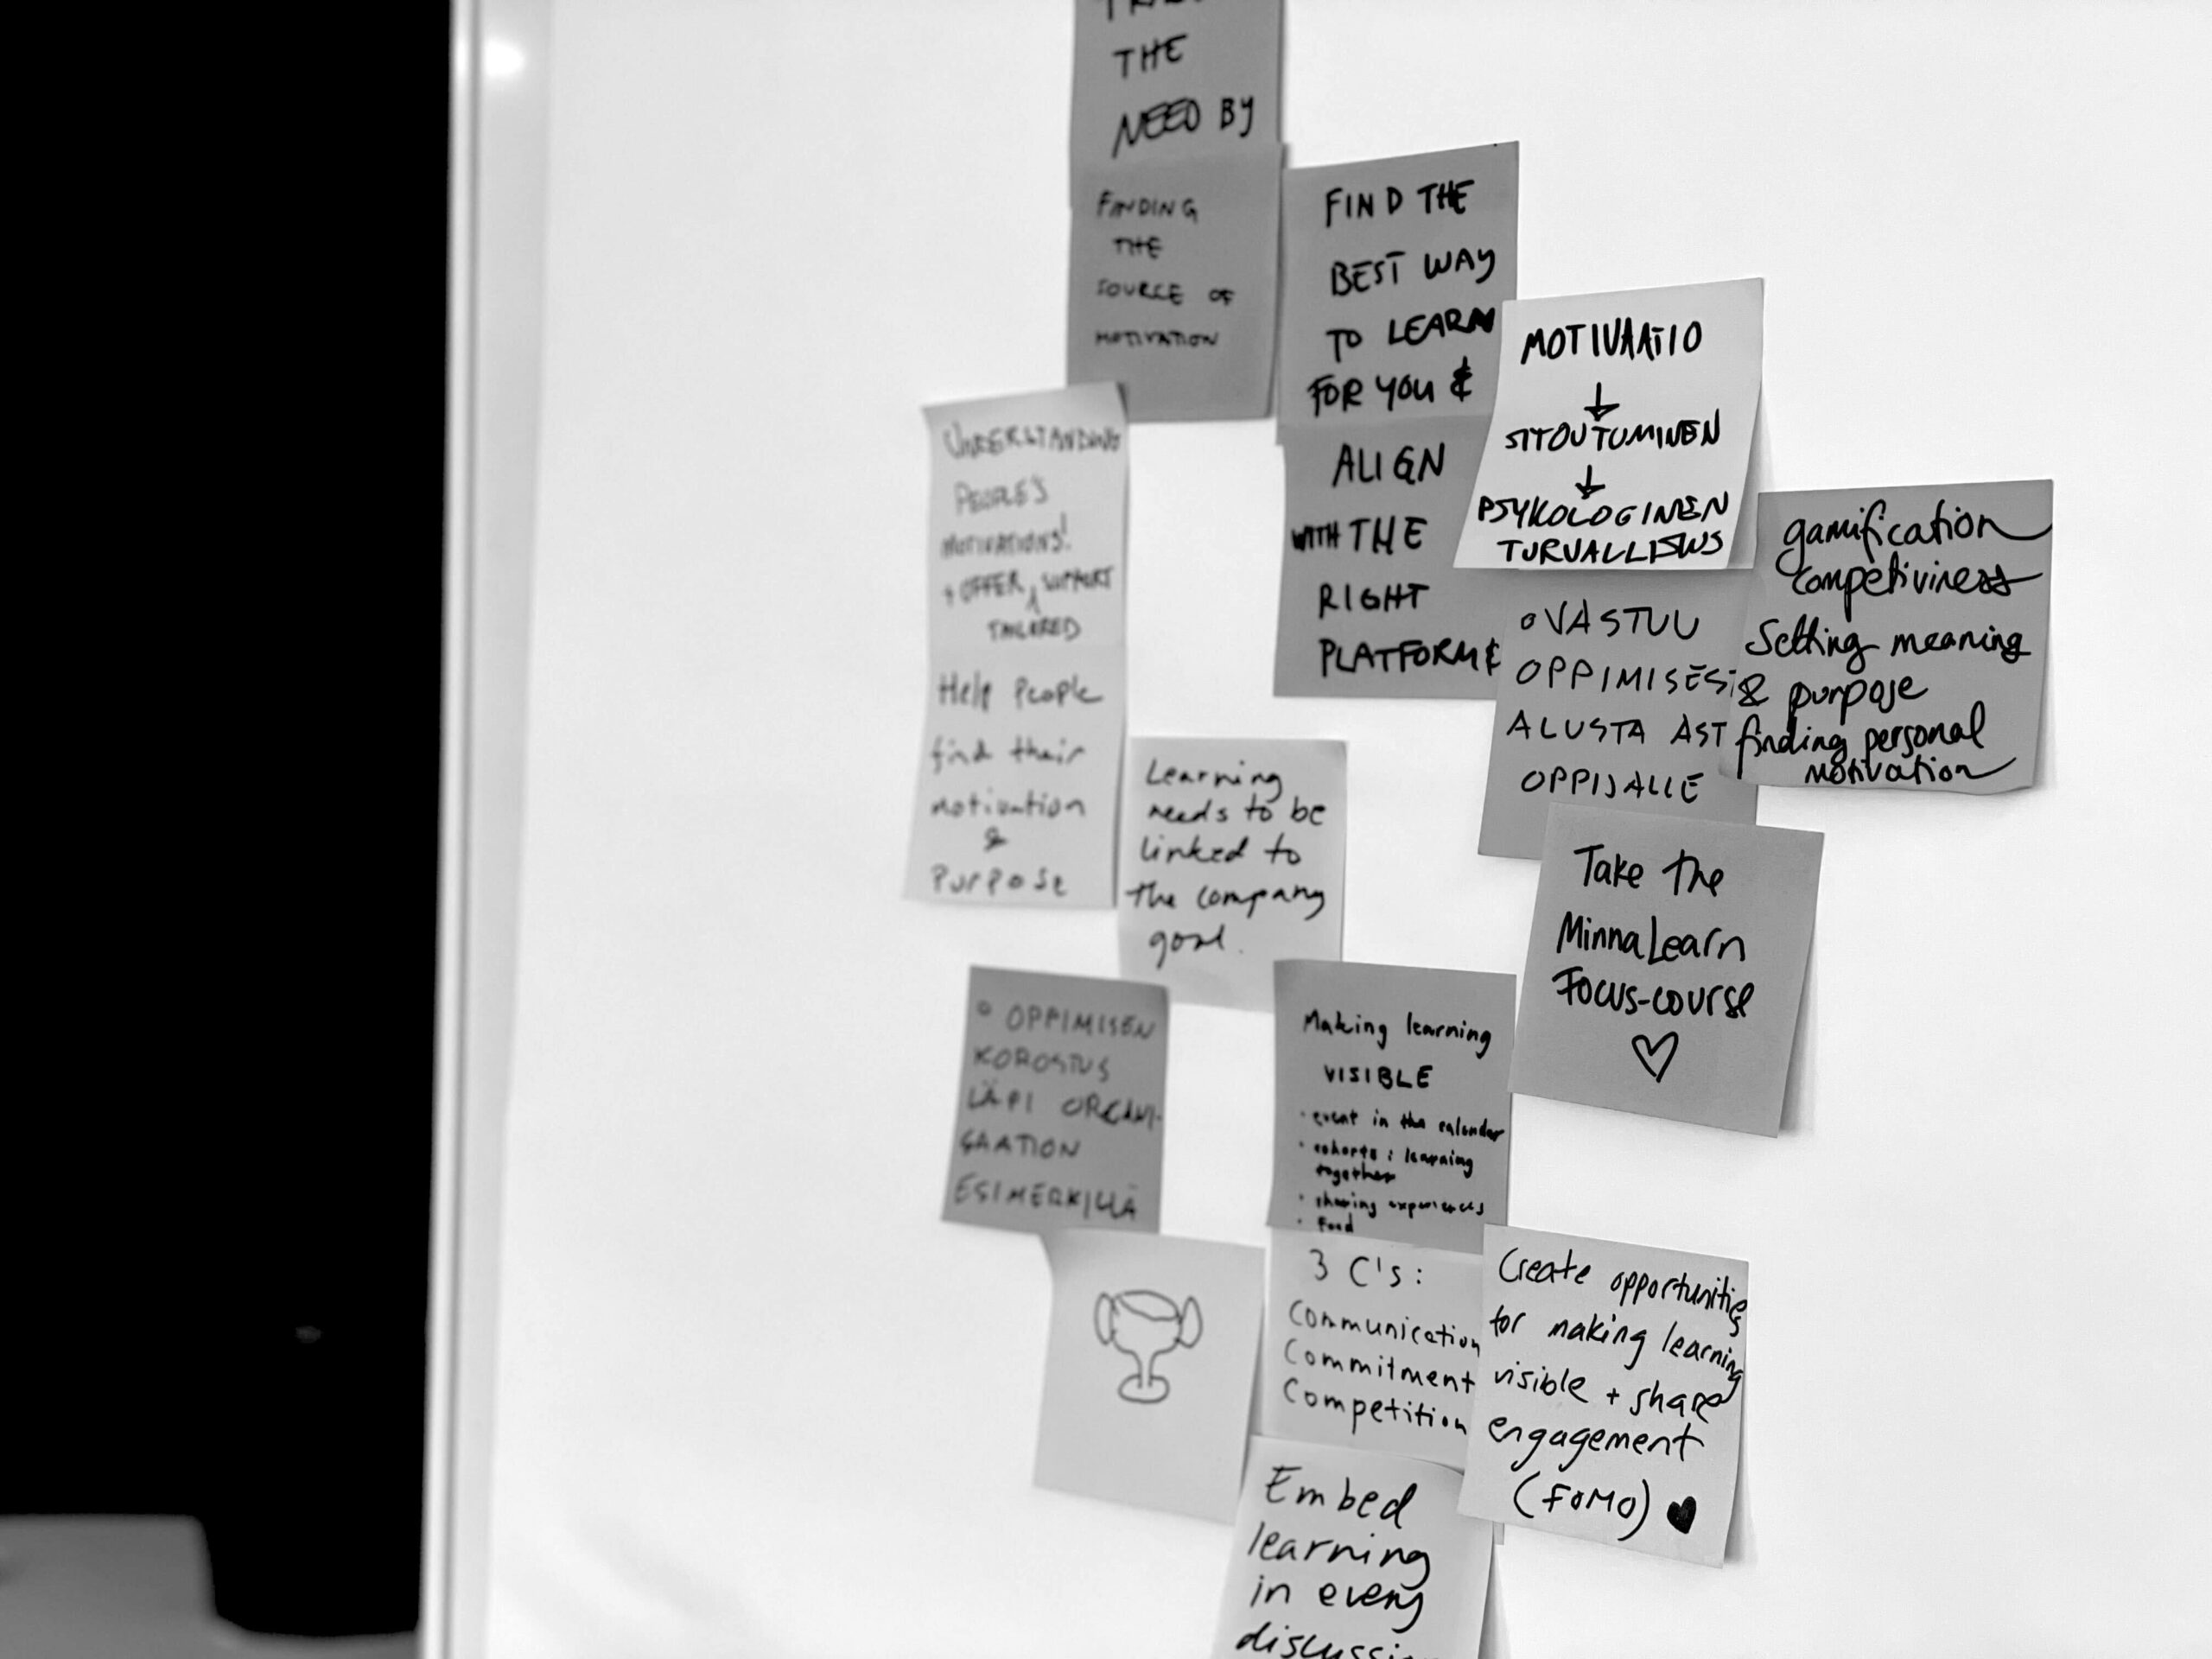 THE
NEED BY
FINDING
THE
SOURCE OF
MOTIVATION
FIND THE
BEST WAY
TO LEARN
FOR YOU &
ALIGN
WITH THE
RIGHT
PLATFORM &
MOTIVAATIO
↓
SITOUTUMINEN
↓
PSYKOLOGINEN
TURVALLISUUS
gamification
competiviness
Setting meaning
& purpose
finding personal
motivation
UNDERSTANDING
PEOPLE'S
MOTIVATIONS!
+ OFFER SUPPORT
TAILORED
Help People
find their
motivation
&
Purpose
VASTUU
OPPIMISES
ALUSTA AST
OPPIJALLE
Learning
needs to be
linked to
the company
goal.
Take the
MinnaLearn
Focus-course
OPPIMISEN
KOROSTUS
LÄPI ORGANI-
SAATION
ESIMERKILLÄ
Making learning
VISIBLE
• event in the calendar
• cohorts: learning
together
• sharing experiences
• Food
3 C's:
Communication
Commitment
Competition
Create opportunities
for making learning
visible + share
engagement
(FOMO)
Embed
learning
in every